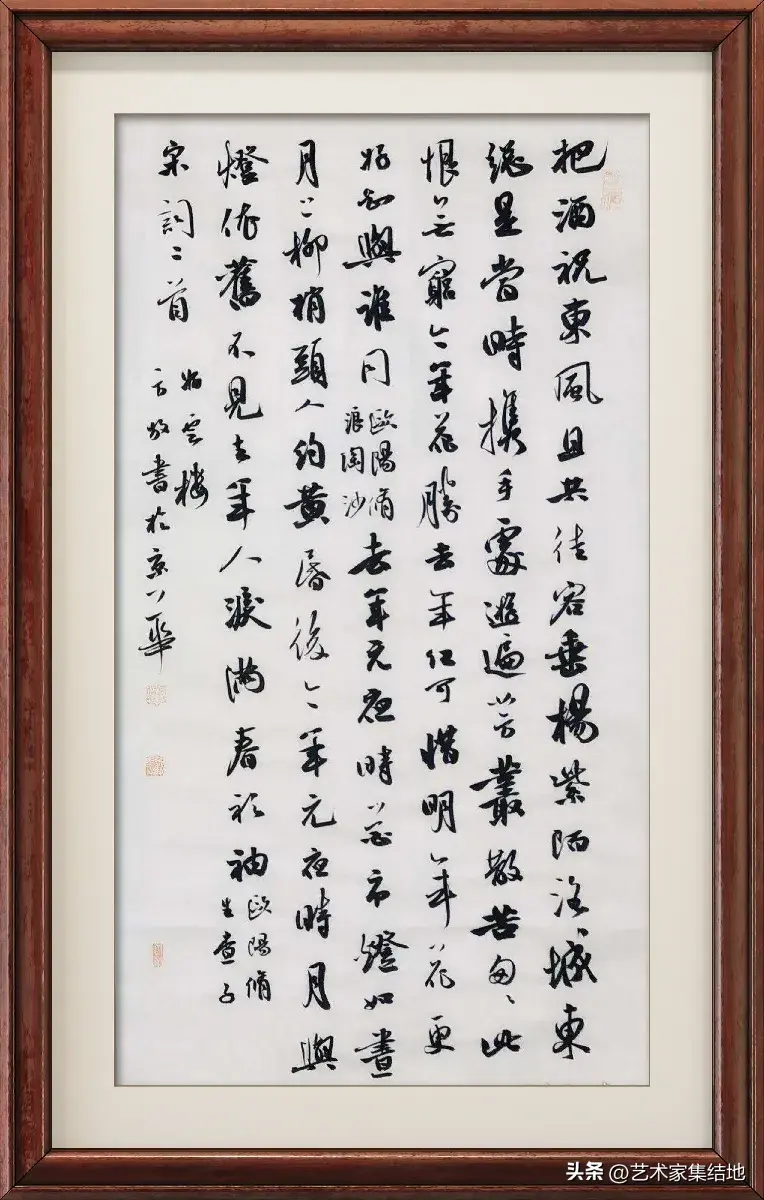 把酒祝東風且共從容垂楊紫陌洛城東
總是當時攜手處遊遍芳叢散苦匆匆此
恨無窮今年花勝去年紅可惜明年花更
好知與誰同歐陽脩浪淘沙去年元夜時花市燈如晝
月上柳梢頭人約黃昏後今年元夜時月與
燈依舊不見去年人淚滿春衫袖歐陽脩生查子
宋詞二首
雲樓
方書於京華
头条 @艺术家集结地